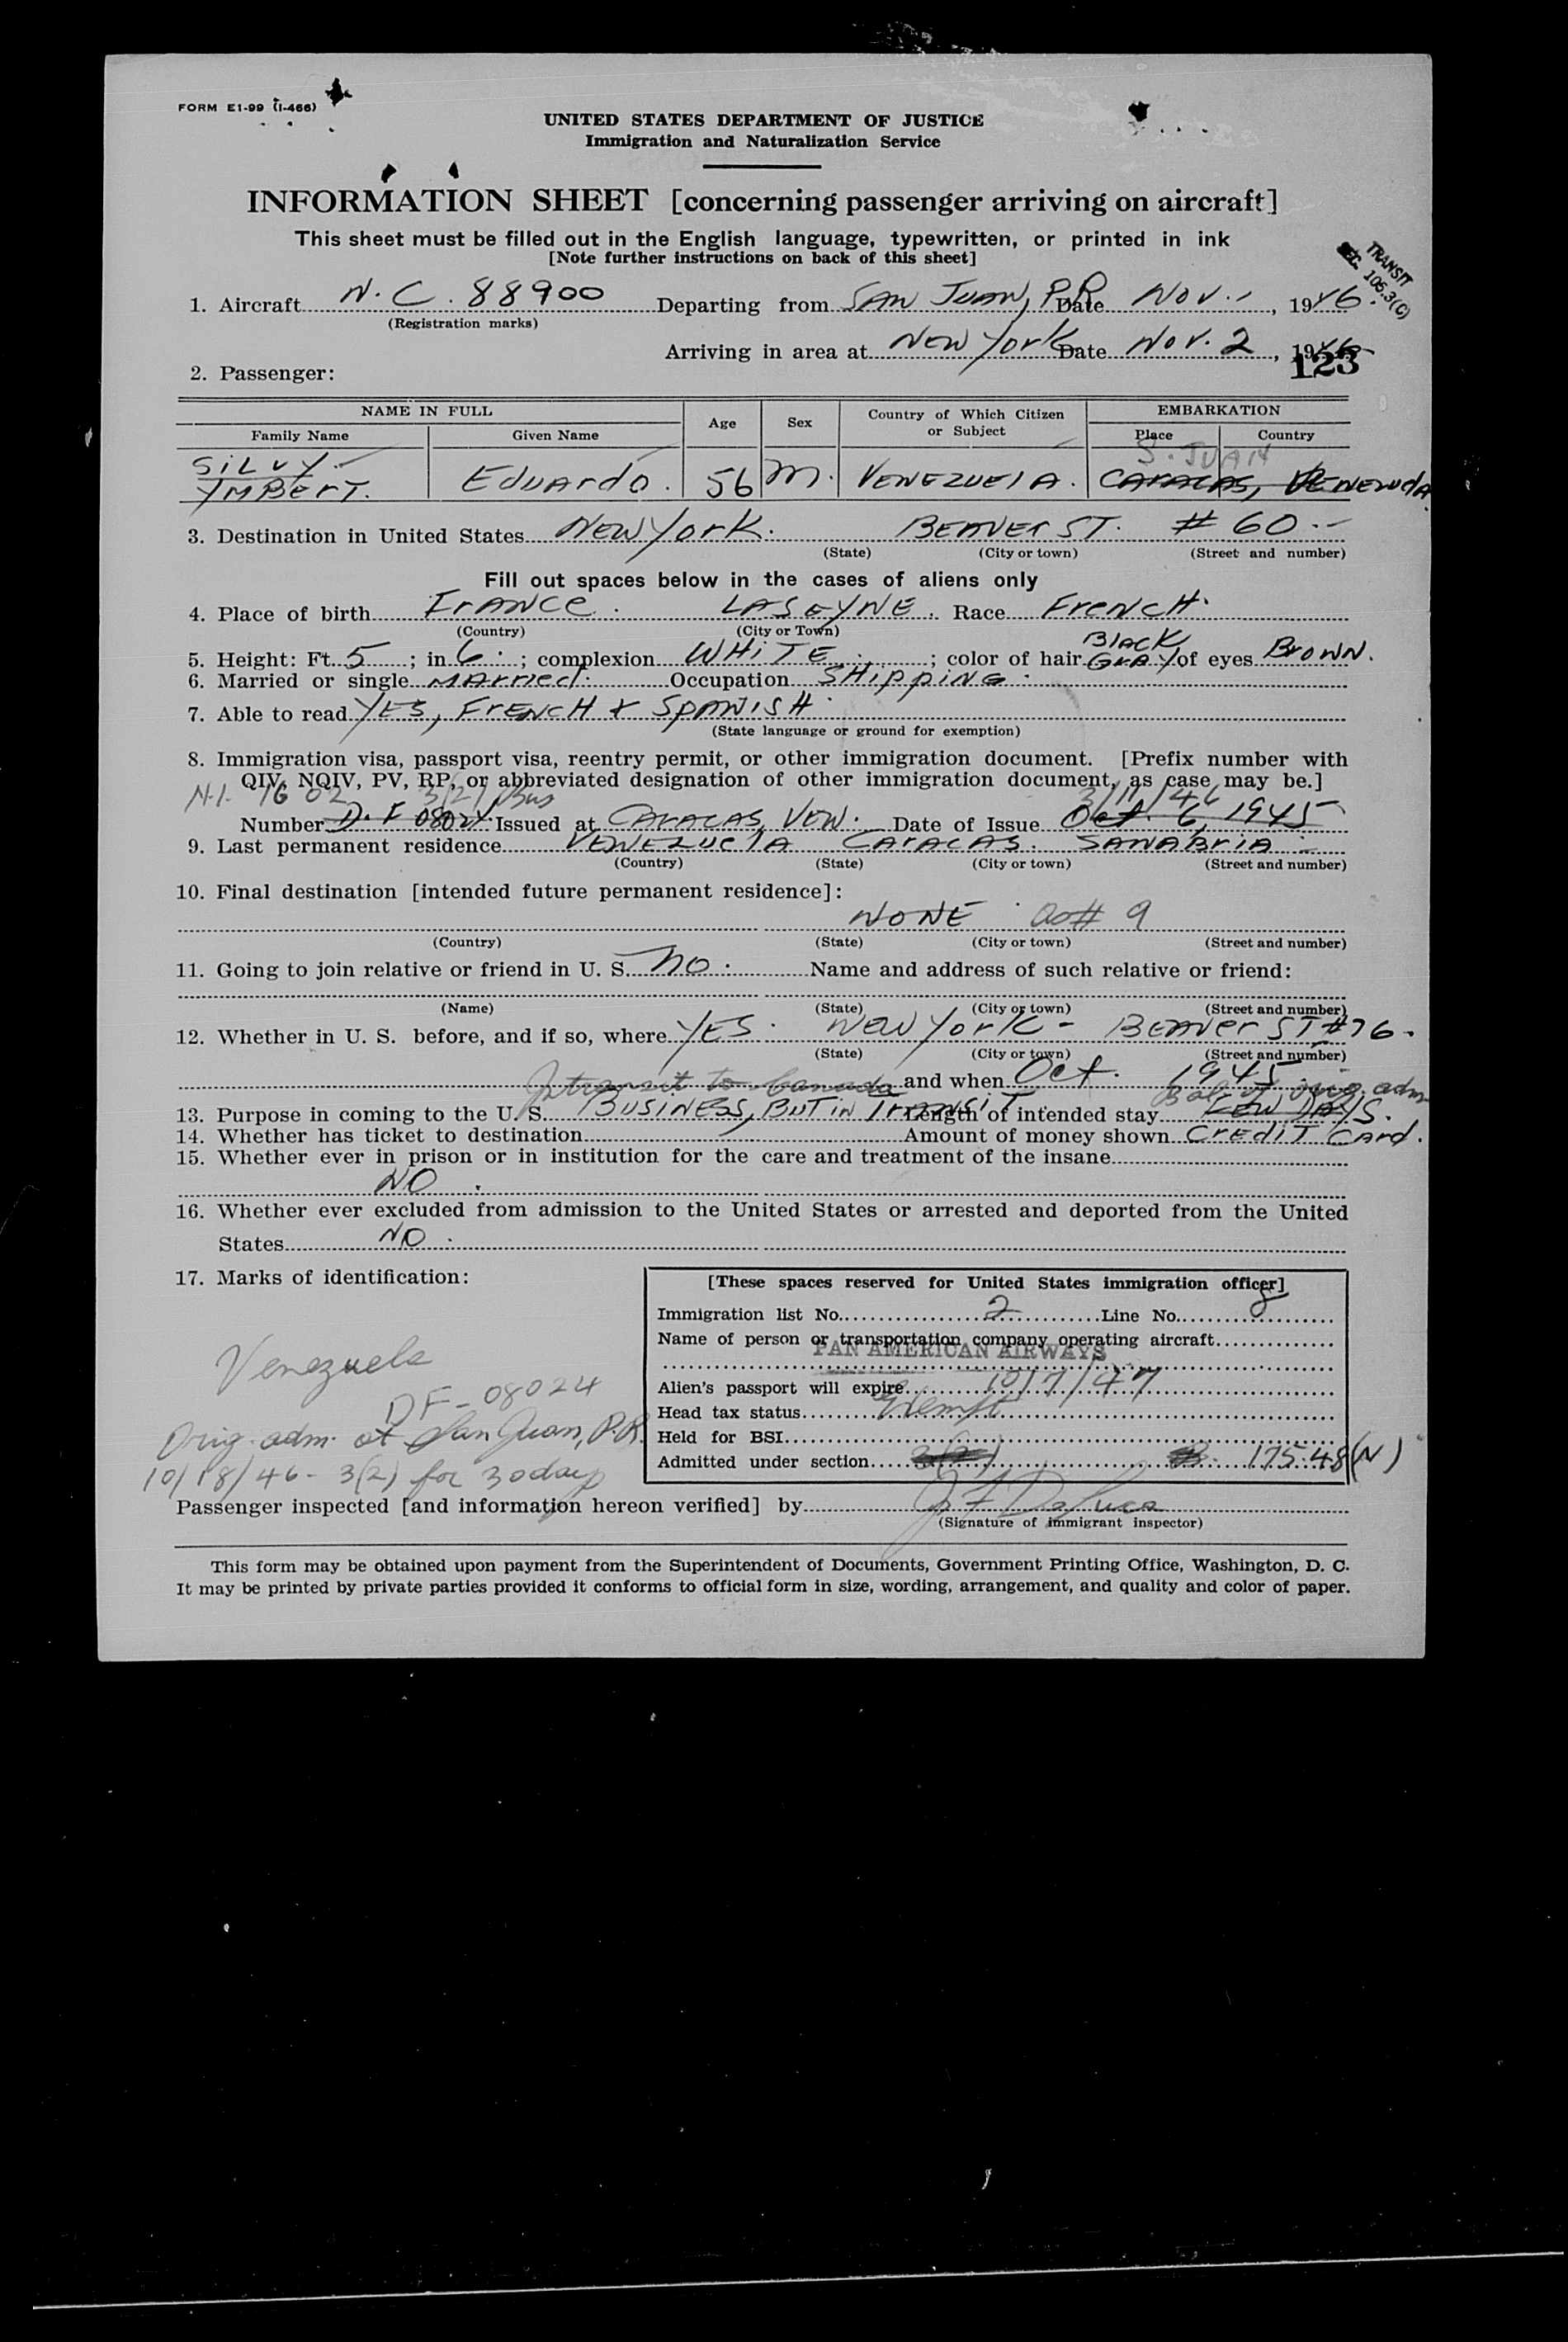 FORM E1-99 (I-466)
UNITED STATES DEPARTMENT OF JUSTICE
Immigration and Naturalization Service
INFORMATION SHEET [concerning passenger arriving on aircraft]
This sheet must be filled out in the English language, typewritten, or printed in ink
[Note further instructions on back of this sheet]
TRANSIT
SEC. 105.3(C)
1. Aircraft N.C. 88900 Departing from SAN JUAN, P.R. Date Nov. 1, 1946.
(Registration marks)
Arriving in area at NEW York Date Nov. 2, 1946
123
2. Passenger:
NAME IN FULL Age Sex Country of Which Citizen or Subject EMBARKATION
Family Name Given Name Place Country
S. JUAN
SiLVY YMBErT. EDUArdo. 56 M. VENEZUELA. CArACAS, VENEZUElA
3. Destination in United States NEW York. BEAVER ST. # 60.-
(State) (City or town) (Street and number)
Fill out spaces below in the cases of aliens only
4. Place of birth FrANCe. LASEYNE. Race FrENCH.
(Country) (City or Town)
BlACK
5. Height: Ft. 5; in 6; complexion WHITE; color of hair GrAY of eyes BrOWN.
6. Married or single MArried. Occupation SHIPPING.
7. Able to read YES, FrENCH & SPANISH.
(State language or ground for exemption)
8. Immigration visa, passport visa, reentry permit, or other immigration document. [Prefix number with
QIV, NQIV, PV, RP, or abbreviated designation of other immigration document, as case may be.]
1602 3(2) Bus 3/11/46
Number D.F 08024 Issued at CArACAS, VEN. Date of Issue Oct. 6, 1945
9. Last permanent residence VENEZUElA CArACAS. SANABriA
(Country) (State) (City or town) (Street and number)
10. Final destination [intended future permanent residence]:
NONE as # 9
(Country) (State) (City or town) (Street and number)
11. Going to join relative or friend in U. S. No. Name and address of such relative or friend:
(Name) (State) (City or town) (Street and number)
12. Whether in U. S. before, and if so, where YES. NEW York - BEAVEr ST #76.
(State) (City or town) (Street and number)
and when Oct. 1945
In transit to Canada Bal of orig. adm
13. Purpose in coming to the U. S. BUSINESS, BUT IN TrANSIT. Length of intended stay FEW DAYS.
14. Whether has ticket to destination Amount of money shown CrEDIT CArd.
15. Whether ever in prison or in institution for the care and treatment of the insane
NO.
16. Whether ever excluded from admission to the United States or arrested and deported from the United
States NO.
17. Marks of identification:
Venezuela
DF-08024
Orig. adm. at San Juan, P.R.
10/18/46 - 3(2) for 30 days
[These spaces reserved for United States immigration officer]
Immigration list No. 2 Line No. 8
Name of person or transportation company operating aircraft
PAN AMERICAN AIRWAYS
Alien's passport will expire 10/7/47
Head tax status Exempt
Held for BSI
Admitted under section 3(2) 175.48(N)
Passenger inspected [and information hereon verified] by
(Signature of immigrant inspector)
This form may be obtained upon payment from the Superintendent of Documents, Government Printing Office, Washington, D. C.
It may be printed by private parties provided it conforms to official form in size, wording, arrangement, and quality and color of paper.